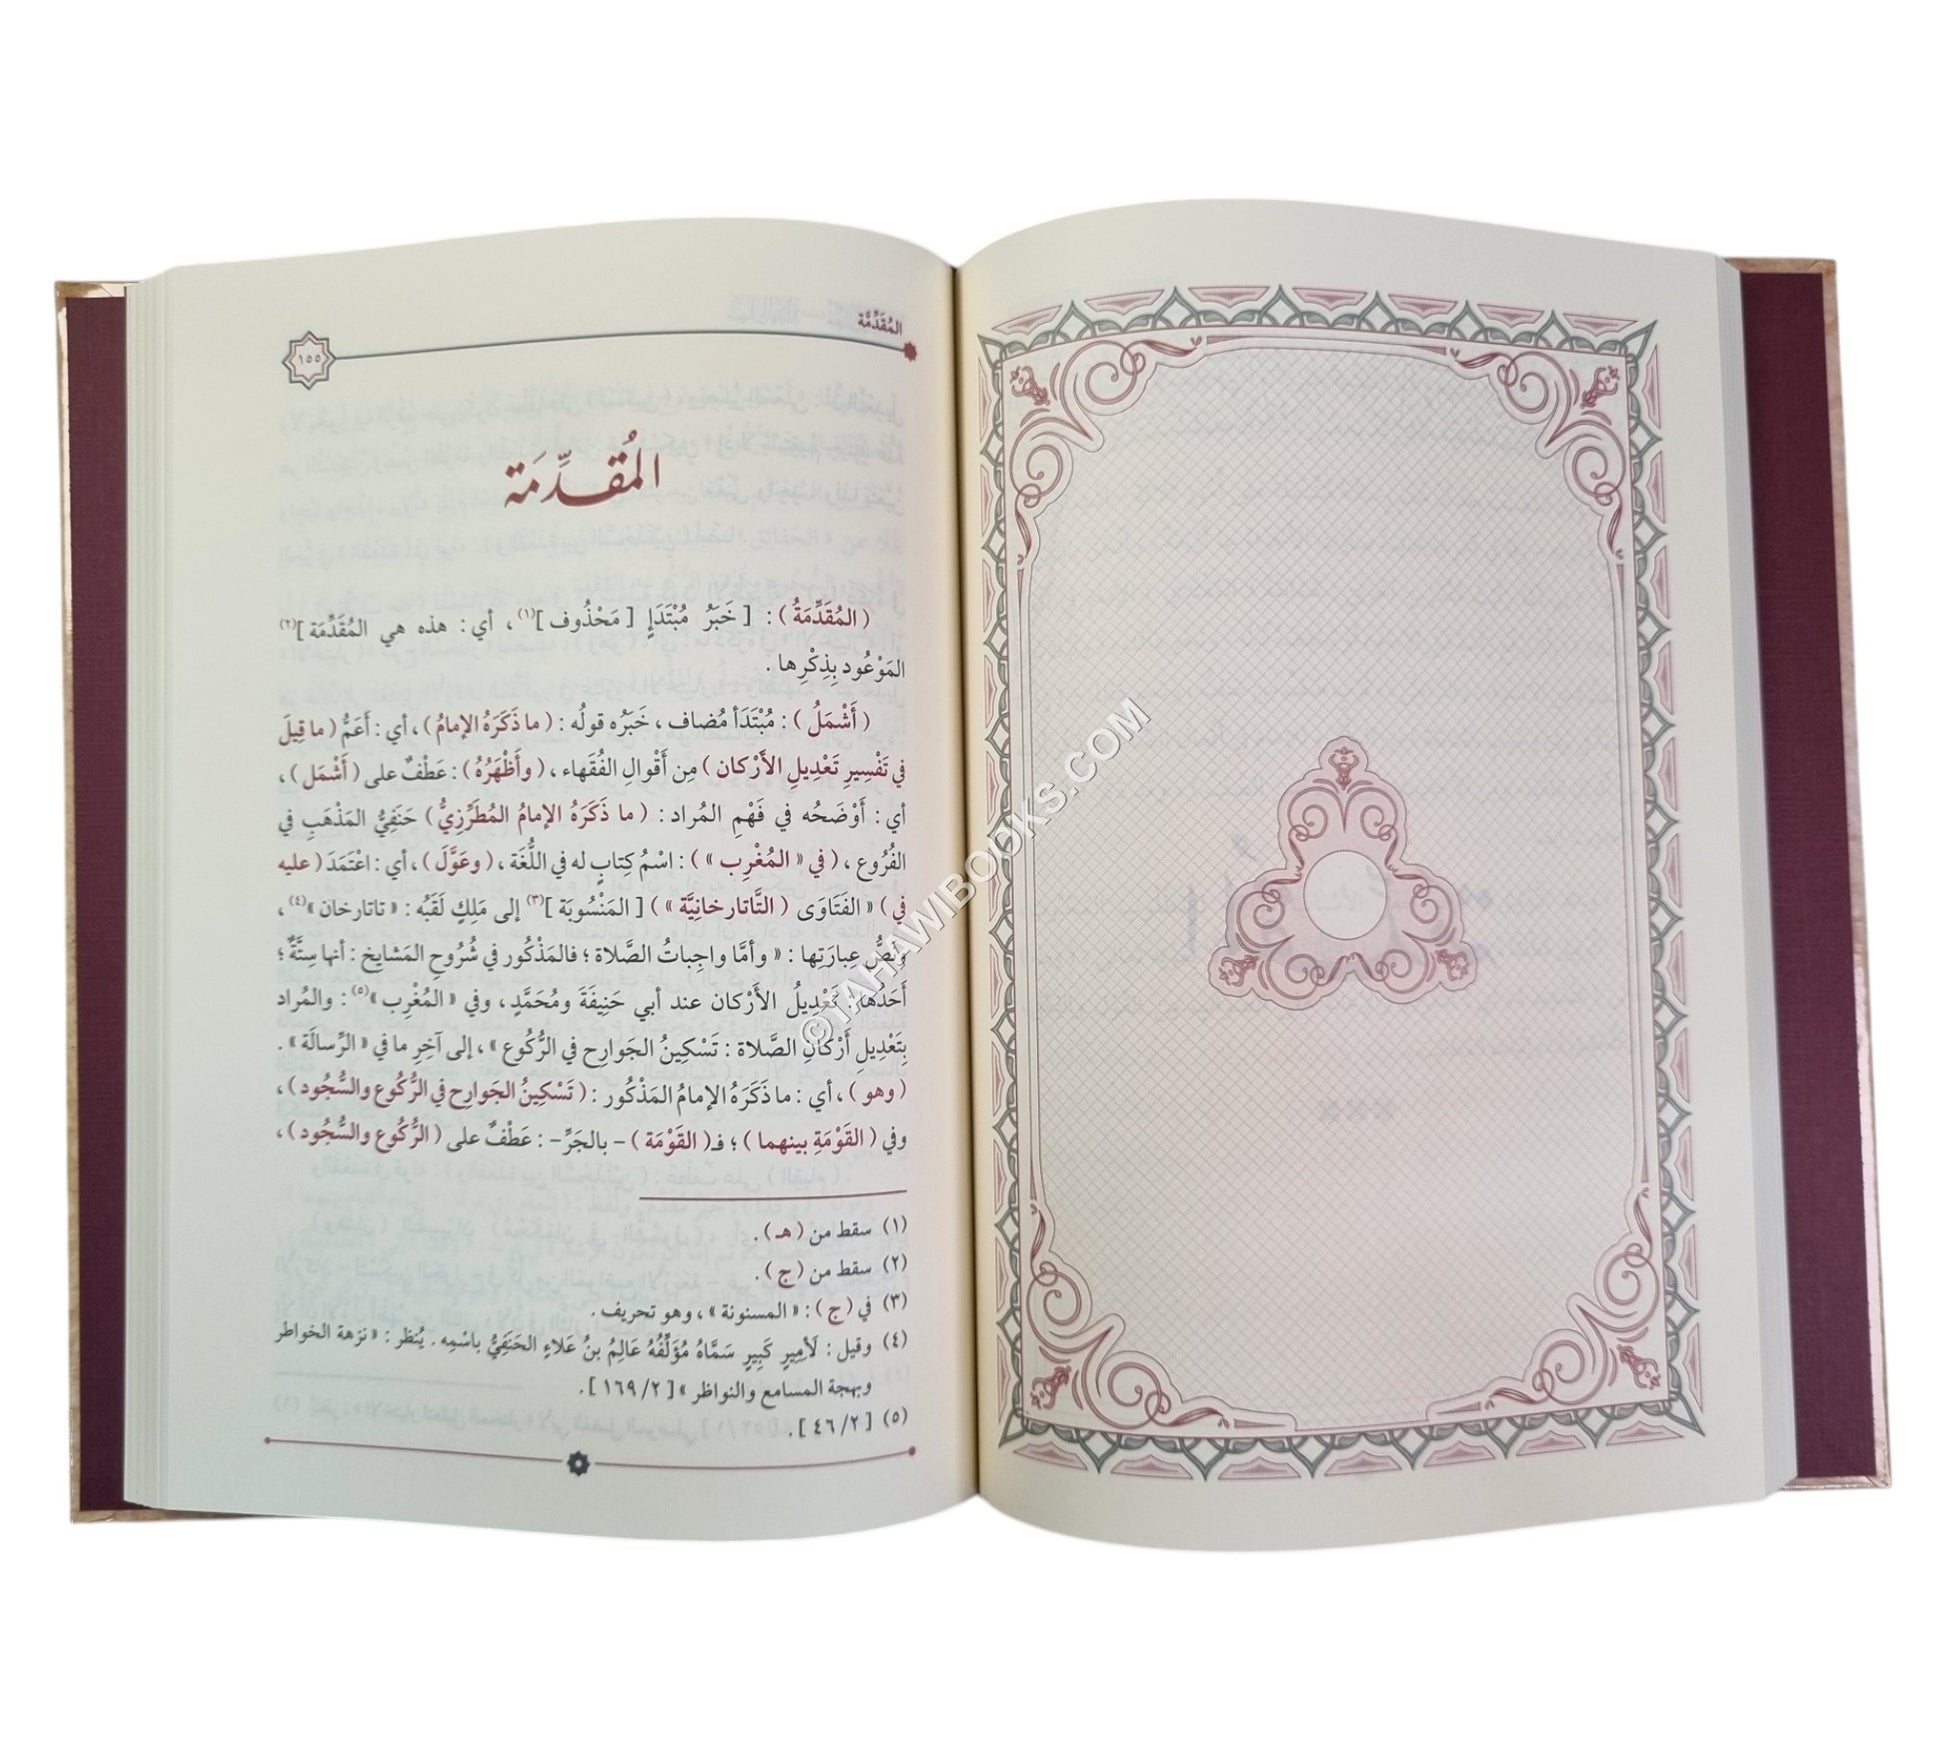 المُقَدِّمَة
١٥٥
المُقَدِّمَة
( المُقَدِّمَةُ ) : [ خَبَرُ مُبْتَدَإٍ [ مَحْذُوف ](١) ، أي : هذه هي المُقَدِّمَة ](٢)
المَوْعُود بِذِكْرِها .
( أَشْمَلُ ) : مُبْتَدَأ مُضاف ، خَبَرُه قولُه : ( ما ذَكَرَهُ الإمامُ ) ، أي : أَعَمُّ ( ما قِيلَ
في تَفْسِيرِ تَعْدِيلِ الأَرْكان ) مِن أَقْوالِ الفُقَهاء ، ( وأَظْهَرُهُ ) : عَطْفٌ على ( أَشْمَل ) ،
أي : أَوْضَحُه في فَهْمِ المُراد : ( ما ذَكَرَهُ الإمامُ المُطَرِّزِيُّ ) حَنَفِيُّ المَذْهَبِ في
الفُرُوع ، ( في « المُغْرِب » ) : اسْمُ كِتابٍ له في اللُّغَة ، ( وعَوَّلَ ) ، أي : اعْتَمَدَ ( عليه
في ) « الفَتَاوَى ( التَّاتارخانِيَّة » ) [ المَنْسُوبَة ](٣) إلى مَلِكٍ لَقَبُه : « تاتارخان »(٤) ،
ونَصُّ عِبارَتِها : « وأمَّا واجِباتُ الصَّلاة ؛ فالمَذْكُور في شُرُوحِ المَشايِخ : أنها سِتَّةٌ ؛
أَحَدُها : تَعْدِيلُ الأَرْكان عند أبي حَنِيفَةَ ومُحَمَّدٍ ، وفي « المُغْرِب »(٥) : والمُراد
بِتَعْدِيلِ أَرْكانِ الصَّلاة : تَسْكِينُ الجَوارِح في الرُّكُوع » ، إلى آخِرِ ما في « الرِّسالَة » .
( وهو ) ، أي : ما ذَكَرَهُ الإمامُ المَذْكُور : ( تَسْكِينُ الجَوارِح في الرُّكُوع والسُّجُود ) ،
وفي ( القَوْمَةِ بينهما ) ؛ فـ( القَوْمَة ) - بالجَرِّ - : عَطْفٌ على ( الرُّكُوع والسُّجُود ) ،
(١) سقط من ( هـ ) .
(٢) سقط من ( ج ) .
(٣) في ( ج ) : « المسنونة » ، وهو تحريف .
(٤) وقيل : لَأمِيرٍ كَبِيرٍ سَمَّاهُ مُؤَلِّفُهُ عَالِمُ بنُ عَلاءٍ الحَنَفِيُّ باسْمِه . يُنظر : « نزهة الخواطر
وبهجة المسامع والنواظر » [ ٢/ ١٦٩ ] .
(٥) [ ٢/ ٤٦ ] .
©TAHAWIBOOKS.COM